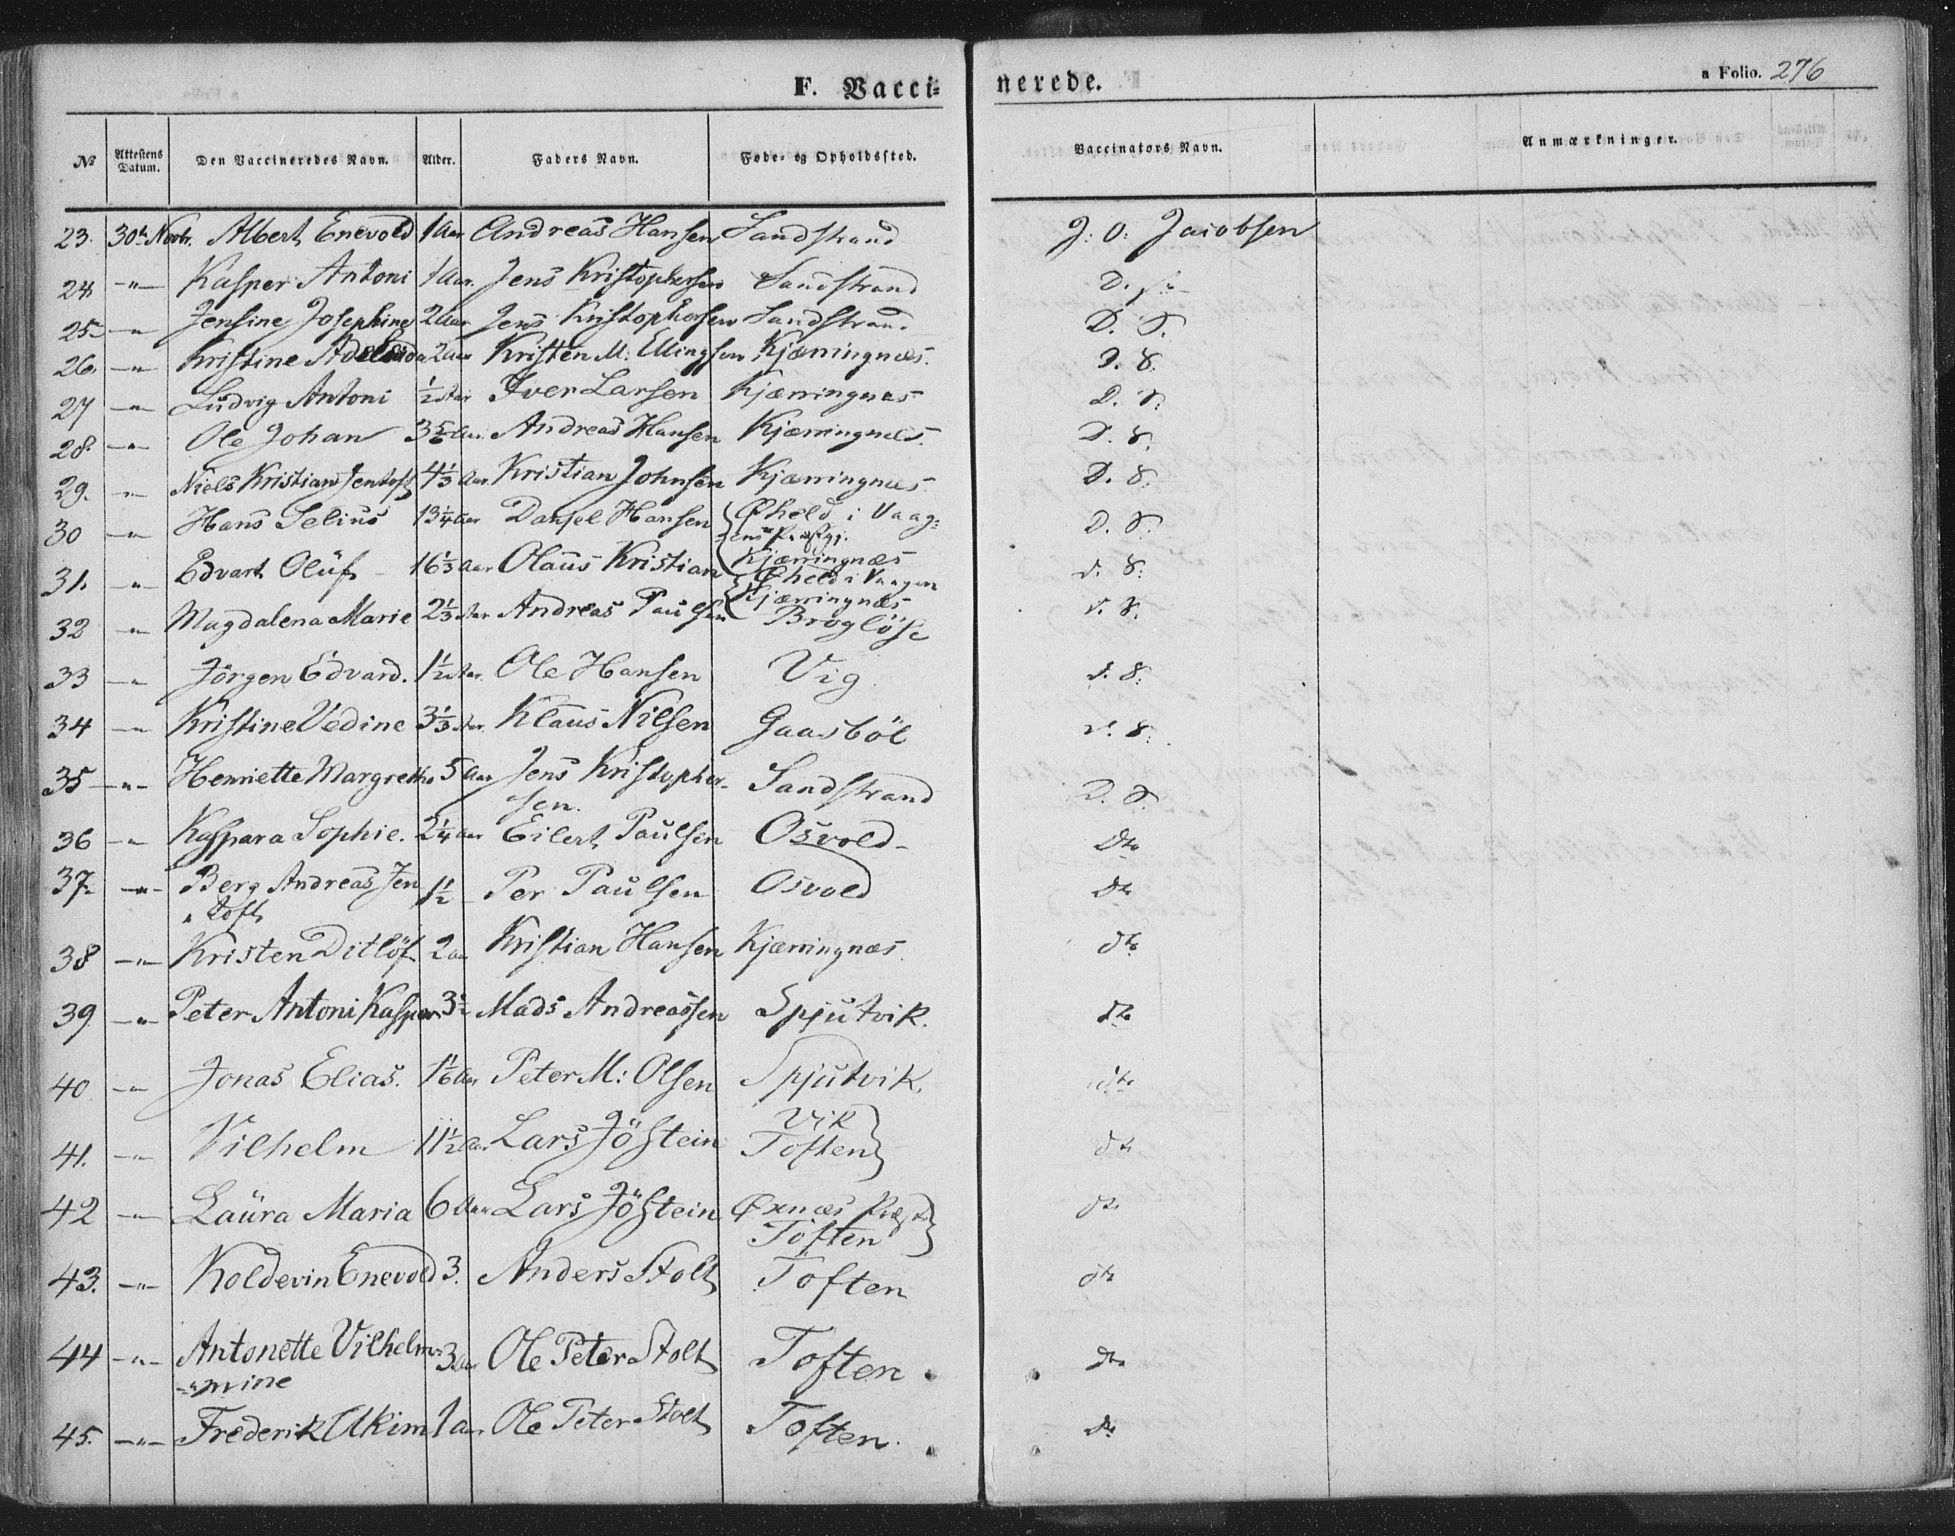 F. Vacci=
nerede.
a Folio. 276
№ Attestens Datum. Den Vaccineredes Navn. Alder. Faders Navn. Føde- og Opholdssted. Vaccinators Navn. Anmærkninger.
23. 30te Novbr. Albert Enevold 1 Aar Andreas Hansen Sandstrand J: O: Jacobsen
24 -"- Kasper Antoni 1 Aar. Jens Kristophersen Sandstrand
25 -"- Jensine Josephine 2 Aar Jens Kristophersen Sandstrand D. S.
26. -"- Kristine Adelaida 2 Aar Kristen M: Ellingsen Kjærringnæs. D. S.
27 -"- Ludvig Antoni ½ Aar Iver Larsen Kjærringnæs D. S.
28. -"- Ole Johan Andreas Hansen Kjærringnæs. D. S.
29. -"- Niels Kristian Jentoft 4⅓ Aar Kristian Johnsen Kjærringnæs. D. S.
30 -"- Hans Selius 13¼ Aar Danjel Hansen Øheld i Vaag=
=ens Præstgj. D. S.
Kjærringnæs
31. -"- Edvart Olüf 16⅓ Aar Olaus Kristian Øheld i Vaagen D. S.
Kjærringnæs
32 -"- Magdalena Marie 2⅓ Aar Andreas Paulsen Brogløse D. S.
33 -"- Jörgen Edvard. 1½ Aar. Ole Hansen Vig D. S.
34 -"- Kristine Vedine 3⅓ Aar Klaus Nilsen Gaasböl D. S.
35 -"- Henriette Margrethe 5 Aar Jens Kristopher-
sen. Sandstrand D. S.
36 -"- Kaspara Sophie. 2¼ Aar Eilert Paulsen Osvold Dto
37. -"- Berg Andreas Jen
"toft 1½ Per Paulsen Osvold Dto
38 -"- Kristen Ditlöf 2 Aar Kristian Hansen Kjærringnæs. dto
39 -"- Peter Antoni Kasper 3½ Mads Andreassen Spjutvik. dto
40 -"- Jonas Elias. 1⅙ Aar Peter M: Olsen Spjutvik. dto
Vik
41. -"- Vilhelm 11½ Aar. Lars Jöstein Toften dto
42 -"- Laüra Maria 6 Aar Lars Jöstein Øxnæs Præstg. dto
Toften
43. -"- Koldevin Enevold 3. Anders Stolt Toften dto
44 -"- Antonette Vilhelm-
="mine 3 Aar Ole Peter Stolt Toften dto
45. -"- Frederik Akim 1 Aar. Ole Peter Stolt Toften. dto